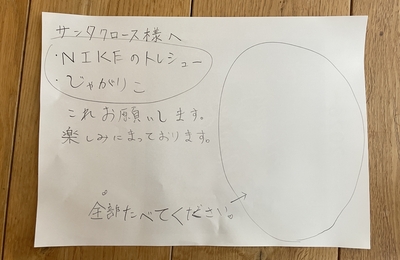 サンタクロース様へ
・NIKEのトレシュー
・じゃがりこ
これお願いします。
楽しみにまっております。
全部たべてください。